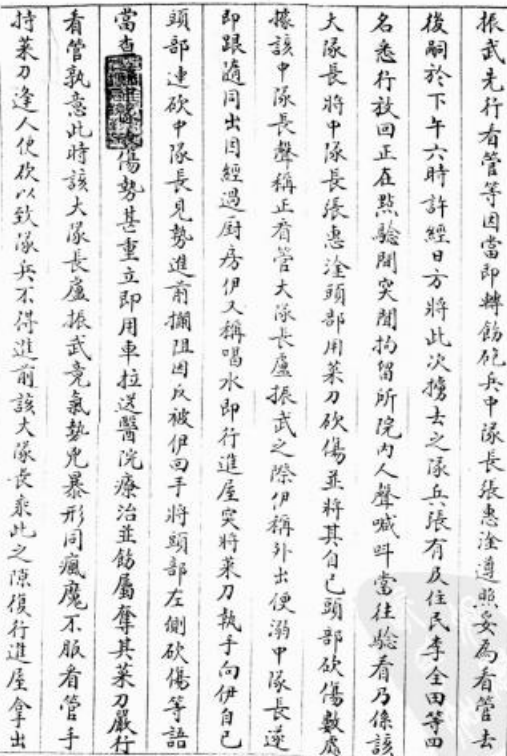 振武先行看管等因當即轉飭砲兵中隊長張惠淦遵照妥為看管去
後嗣於下午六時許經日方將此次擄去之隊兵張有及住民李全田等四
名悉行放回正在點驗間突聞拘留所院內人聲喊呌當往驗看乃係該
大隊長將中隊長張惠淦頭部用菜刀砍傷並將其自己頭部砍傷數處
據該中隊長聲稱正看管大隊長盧振武之際伊稱外出便溺中隊長遂
即跟隨同出因經過厨房伊又稱喝水即行進屋突將菜刀執手向伊自己
頭部連砍中隊長見勢進前攔阻因反被伊回手將頭部左側砍傷等語
當查傷勢甚重立即用車拉送醫院療治並飭屬奪其菜刀嚴行
看管孰意此時該大隊長盧振武竟氣勢兇暴形同瘋魔不服看管手
持菜刀逢人便砍以致隊兵不得進前該大隊長乘此之隙復行進屋拿出